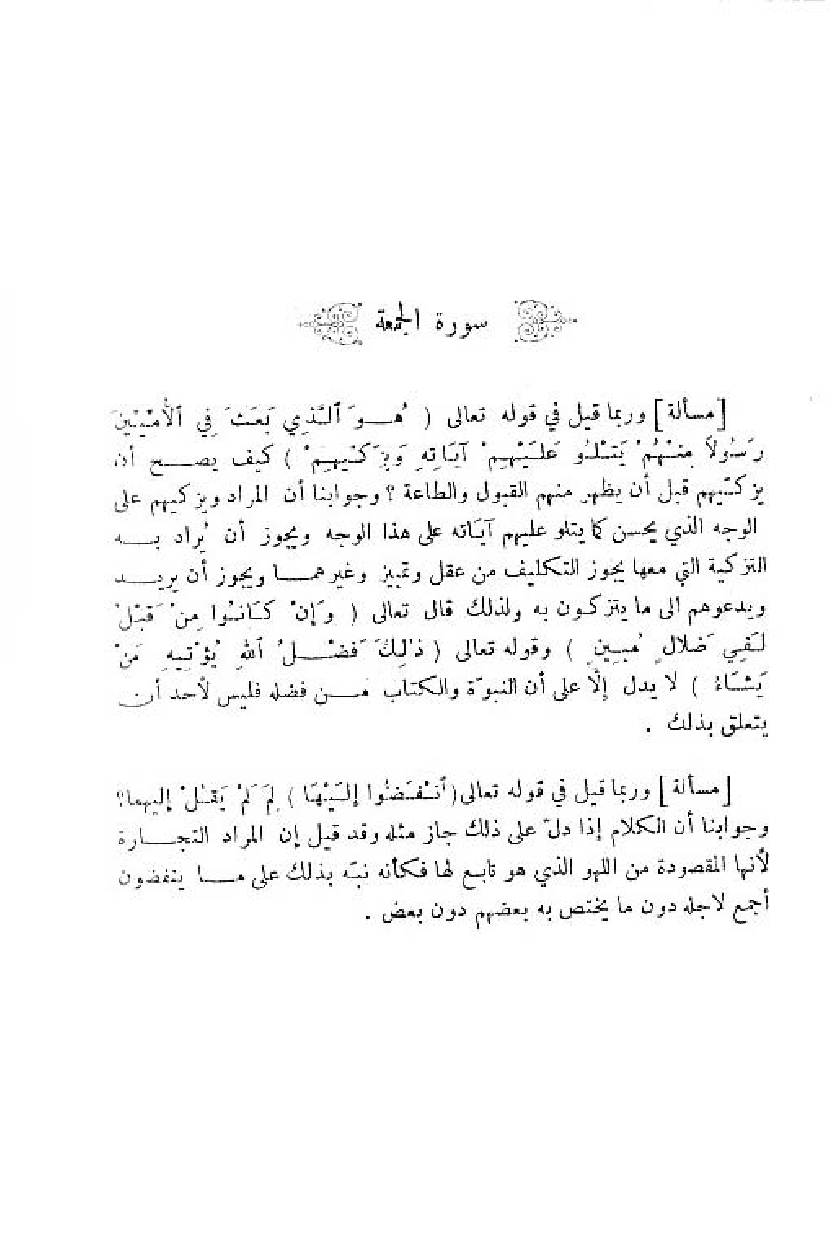 سورة الجمعة
[مسألة] وربما قيل في قوله تعالى ( هُوَ ٱلَّذِي بَعَثَ فِي ٱلْأُمِّيِّينَ
رَسُولاً مِنْهُمْ يَتْلُو عَلَيْهِمْ آيَاتِهِ وَيُزَكِّيهِمْ ) كيف يصح أن
يزكّيهم قبل أن يظهر منهم القبول والطاعة ؟ وجوابنا أن المراد ويزكيهم على
الوجه الذي يحسن كما يتلو عليهم آياته على هذا الوجه ويجوز أن يُراد به
التزكية التي معها يجوز التكليف من عقل وتمييز وغيرهما ويجوز أن يريد
ويدعوهم الى ما يتزكون به ولذلك قال تعالى ( وَإِنْ كَانُوا مِنْ قَبْلُ
لَفِي ضَلَالٍ مُبِينٍ ) وقوله تعالى ( ذٰلِكَ فَضْلُ ٱللهِ يُؤْتِيهِ مَنْ
يَشَاءُ ) لا يدل إلّا على أن النبوّة والكتاب من فضله فليس لأحد أن
يتعلق بذلك .
[مسألة] وربما قيل في قوله تعالى ( ٱنْفَضُّوا إِلَيْهَا ) لِمَ لَمْ يَقُلْ إليهما؟
وجوابنا أن الكلام إذا دلّ على ذلك جاز مثله وقد قيل إن المراد التجارة
لأنها المقصودة من اللهو الذي هو تابع لها فكأنه نبّه بذلك على ما ينفضون
أجمع لاجله دون ما يختص به بعضهم دون بعض .